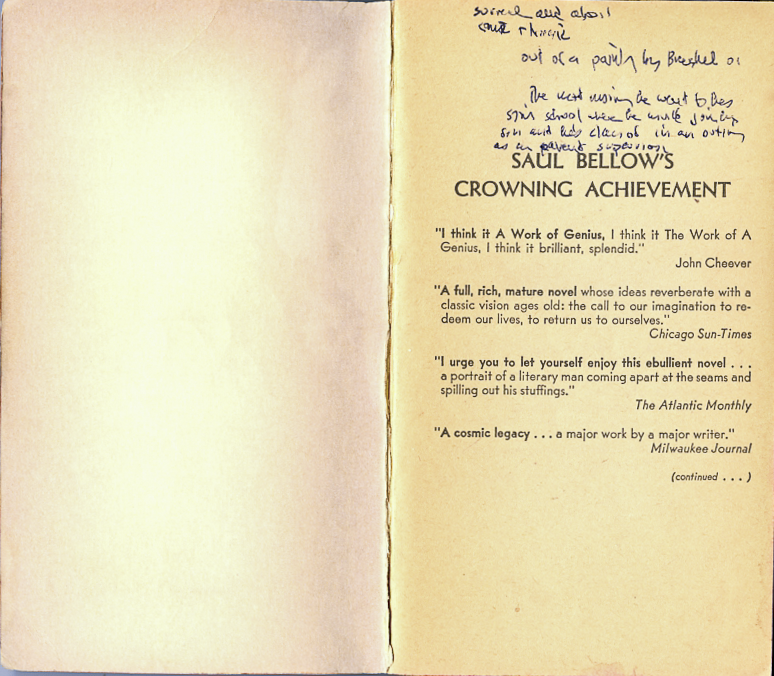 surreal and about
out of a painting by Brueghel or
The next morning he went to his
son's school where he would join his
son and his class of in an outing
as a parent supervisor
SAUL BELLOW'S
CROWNING ACHIEVEMENT
"I think it A Work of Genius, I think it The Work of A
Genius, I think it brilliant, splendid."
John Cheever
"A full, rich, mature novel whose ideas reverberate with a
classic vision ages old: the call to our imagination to re-
deem our lives, to return us to ourselves."
Chicago Sun-Times
"I urge you to let yourself enjoy this ebullient novel . . .
a portrait of a literary man coming apart at the seams and
spilling out his stuffings."
The Atlantic Monthly
"A cosmic legacy . . . a major work by a major writer."
Milwaukee Journal
(continued . . . )